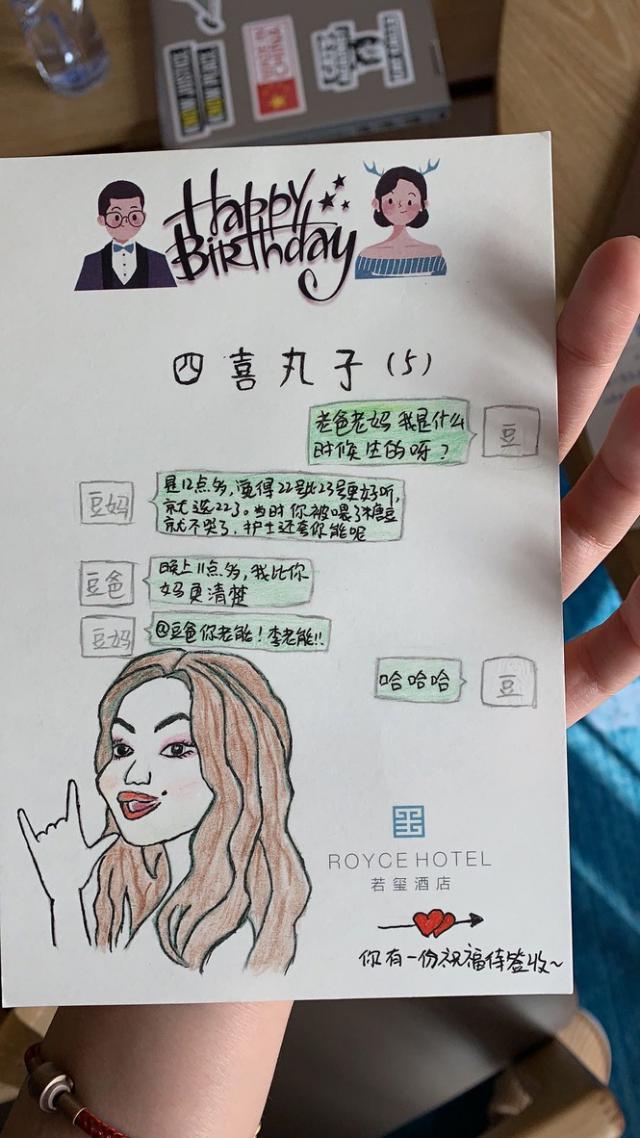 Happy
Birthday
四喜丸子(5)
老爸老妈 我是什么
时候生的呀?
豆
豆妈
是12点多,觉得22号比23号更好听,
就选22了。当时你被喂了糖豆
就不哭了,护士还夸你能呢
豆爸
晚上11点多,我比你
妈更清楚
豆妈
@豆爸你老能!李老能!!
哈哈哈
豆
ROYCE HOTEL
若玺酒店
你有一份祝福待签收~